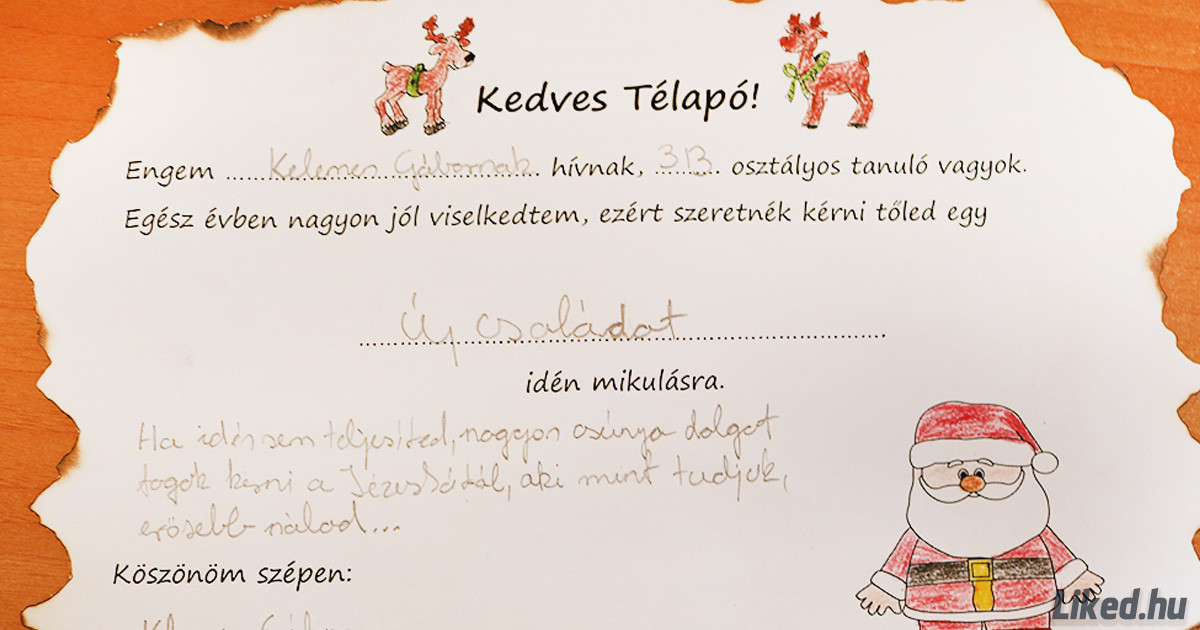 Kedves Télapó!
Engem Kelemen Gábornak hívnak, 3B. osztályos tanuló vagyok.
Egész évben nagyon jól viselkedtem, ezért szeretnék kérni tőled egy
Új családot
idén mikulásra.
Ha idén sem teljesíted, nagyon csúnya dolgot
fogok kérni a Jézuskától, aki mint tudjuk,
erősebb nálad...
Köszönöm szépen:
Liked.hu